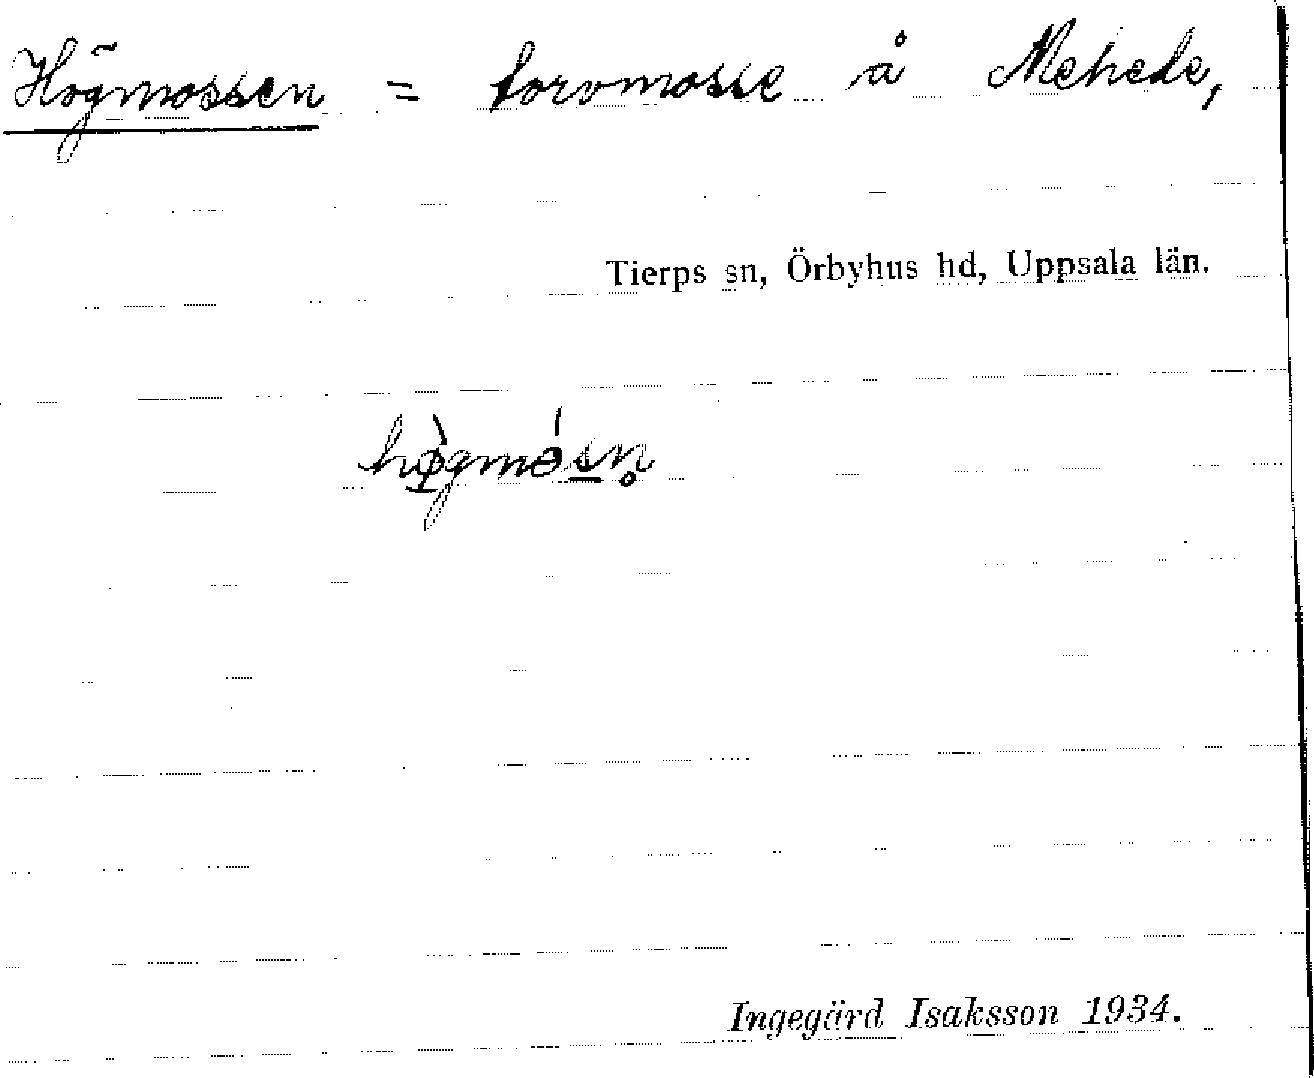 Högmossen = torvmosse å Mehede,
Tierps sn, Örbyhus hd, Uppsala län.
Ingegärd Isaksson 1934.